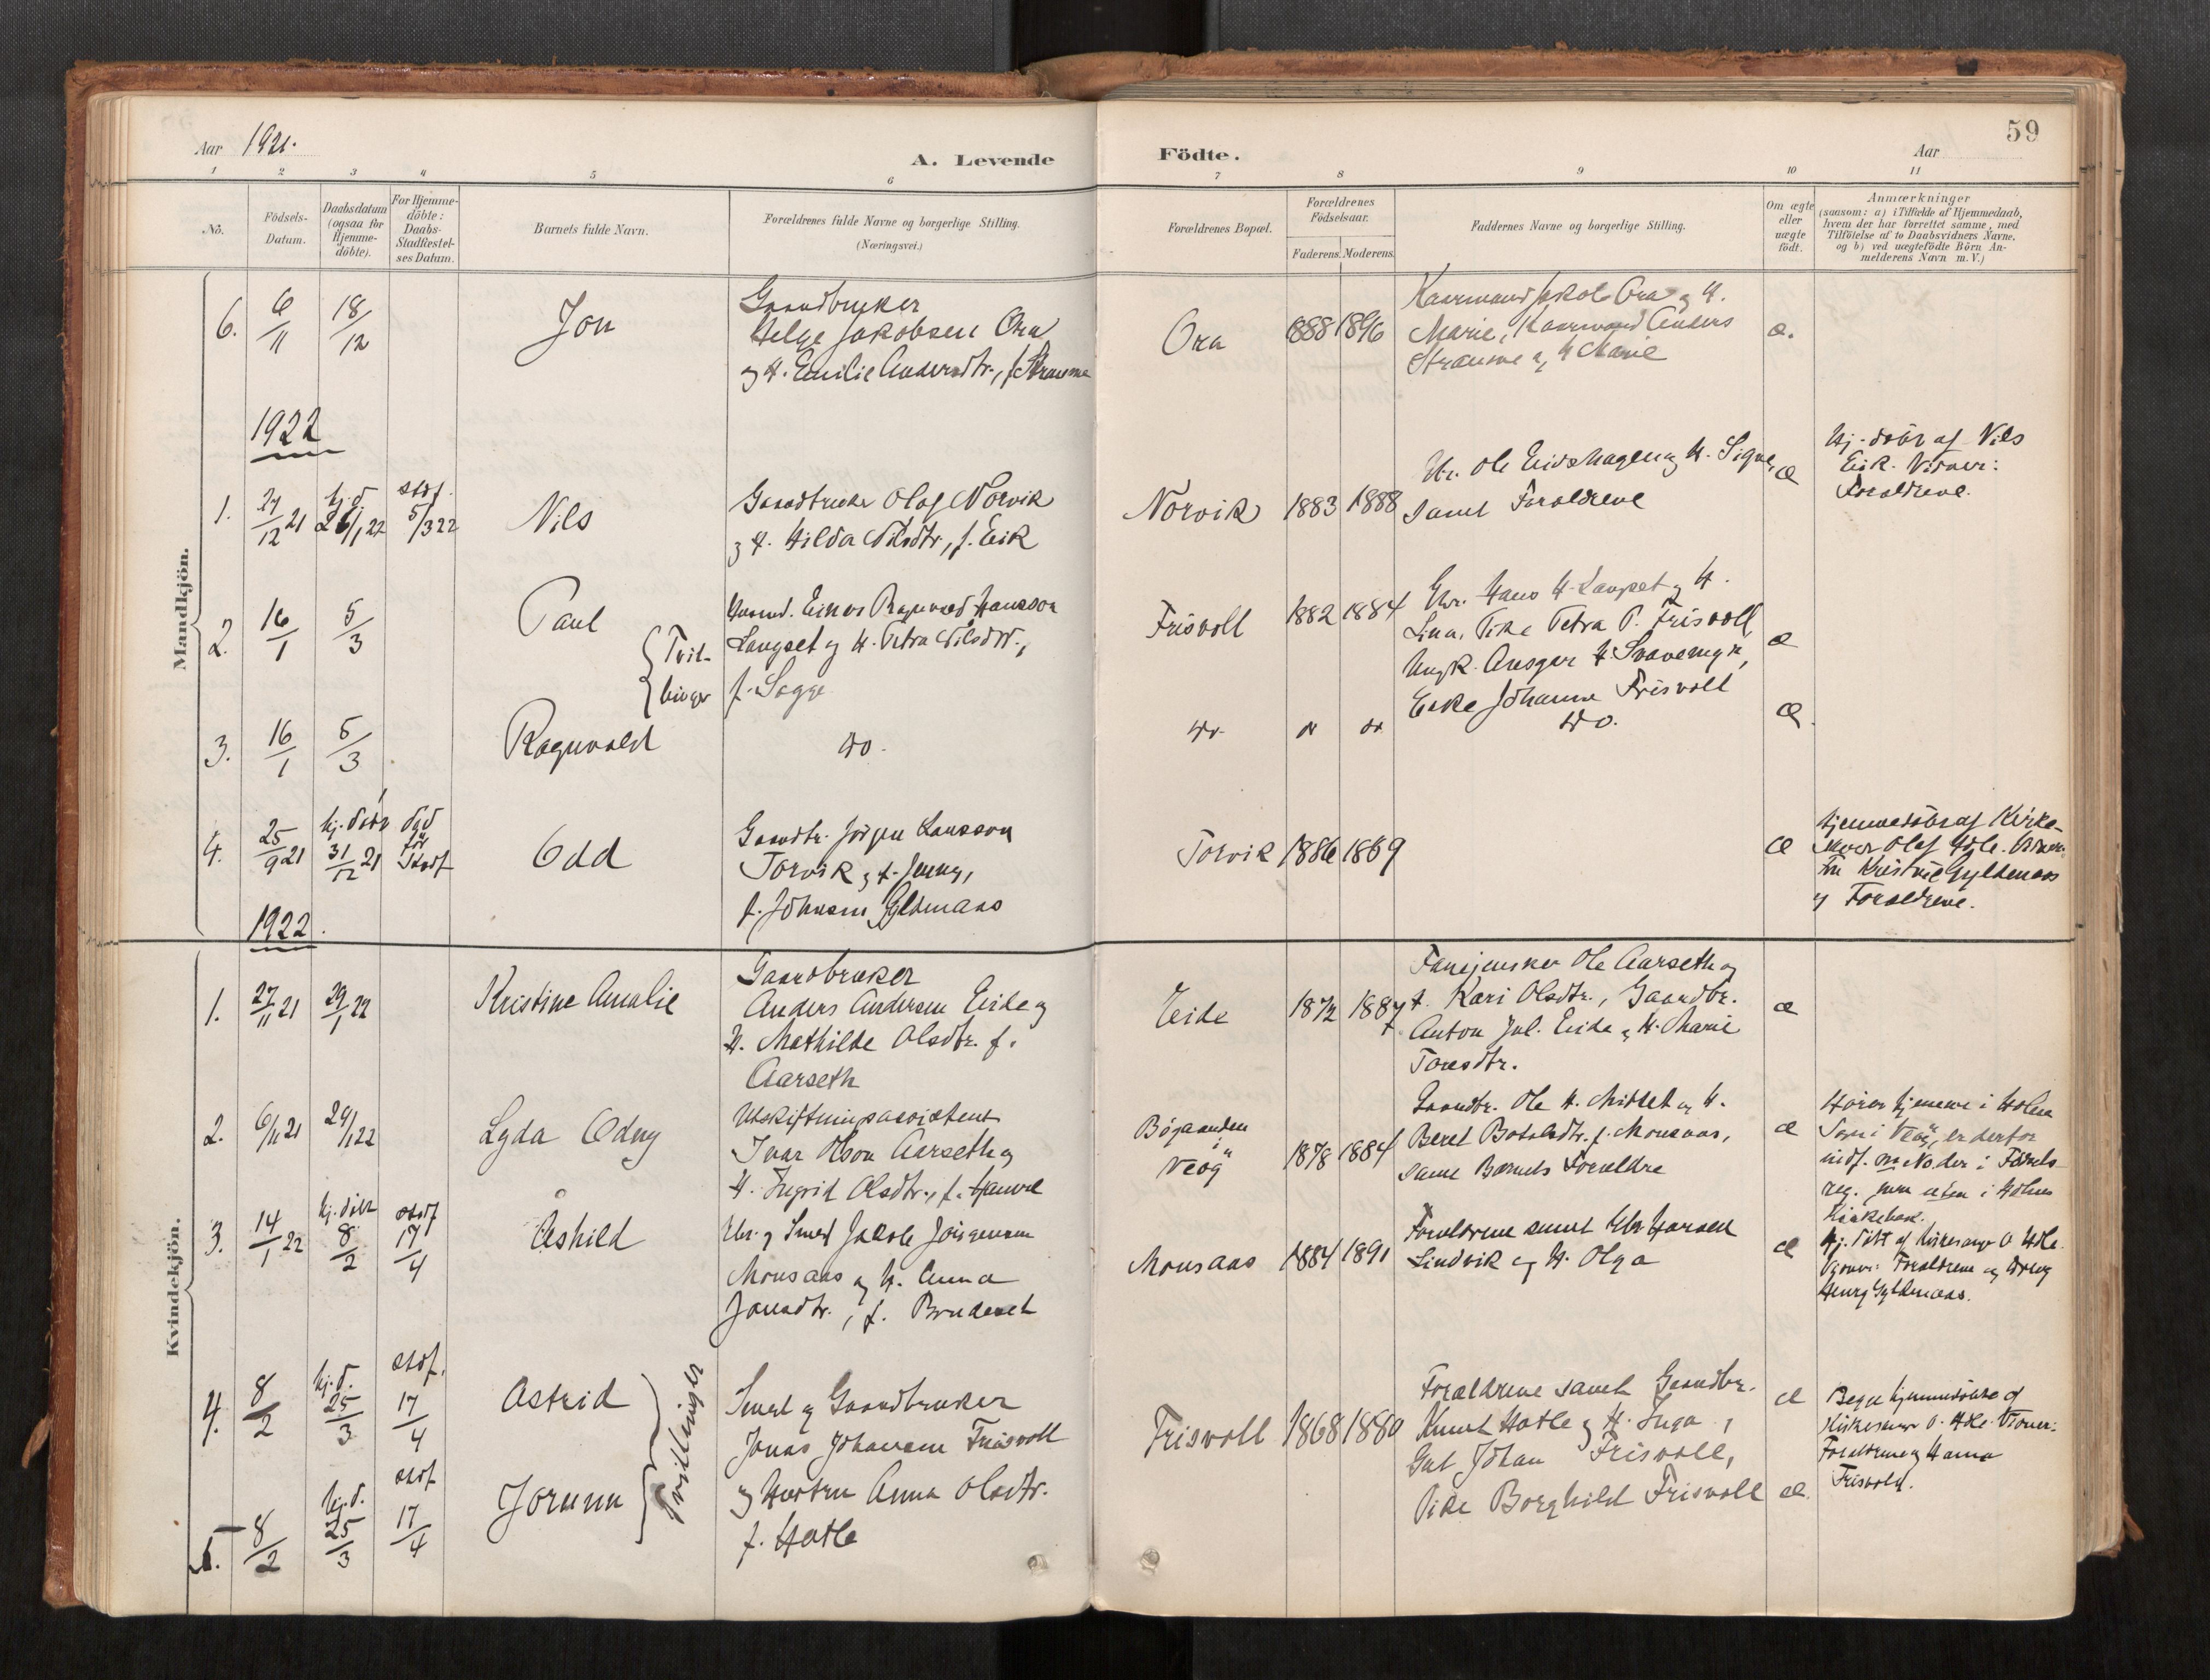 Aar 1921.
A. Levende
Födte.
Aar
59
1 2 3 4 5 6 7 8 9 10 11
No.
Födsels-
Datum.
Daabsdatum
(ogsaa for
Hjemme-
döbte).
For Hjemme-
döbte:
Daabs-
Stadfæstel-
ses Datum.
Barnets fulde Navn.
Forældrenes fulde Navne og borgerlige Stilling.
(Næringsvei.)
Forældrenes Bopæl.
Forældrenes
Födselsaar.
Faderens. Moderens.
Faddernes Navne og borgerlige Stilling.
Om ægte
eller
uægte
födt.
Anmærkninger
(saasom: a) i Tilfælde af Hjemmedaab,
hvem der har forrettet samme, med
Tilföielse af to Daabsvidners Navne,
og b) ved uægtefödte Börn An-
melderens Navn m. V.)
Mandkjön.
6.
6/11
18/12
Jon
Gaardbruker
Helge Jakobsen Ora
og H. Emilie Andersdtr., f. Straume
Ora
1888 1896
Kaarmand Jakob Ora og H.
Marie, Kaarmand Anders
Straume og H Marie
æ.
1922
1.
27/12 21
hj. d.
26/1 22
stdf.
5/3 22
Nils
Gaardbruker Olaf Norvik
og H. Hilda Nilsdtr, f. Eik
Norvik
1883 1888
Gbr. Ole Eidshagen og H. Signe,
samt Forældrene
æ
Hj. döbt af Nils
Eik. Vidner:
Forældrene.
2.
16/1
5/3
Paul
{Tvil-
linger
Einar Ragnvald Hansson
Langset og H. Petra Nilsdtr.,
f. Sogge
Frisvoll
1882 1884
Gbr. Hans H. Langset og H.
Lina, Pike Petra P. Frisvoll,
Ungk. Ansgar H.
Enke Johanne Frisvoll
æ
3.
16/1
5/3
Ragnvald
do.
do. do do
do.
æ.
4.
25/9 21
hj. döbt
31/12 21
död
før
Stadf
Odd
Gaardbr. Jörgen Larsson
Torvik og H. Jenny,
f. Johnsen Gyldenaas
Torvik
1886 1889
æ
Hjemmedöbt af Kirke-
sanger Olaf Hole. Vidner:
Fru Kristine Gyldenaas
og Forældrene.
1922.
Kvindekjön.
1.
27/11 21
29/1 22
Kristine Amalie
Gaardbruker
Anders Andersen Eide og
H. Mathilde Olsdtr. f.
Aarseth
Eide
1872 1887
Ole Aarseth og
H. Kari Olsdtr., Gaardbr.
Anton Jul. Eide og H. Marie
Toresdtr.
æ
2.
6/11 21
29/1 22
Lyda Odny
Utskiftningsassistent
Ivar Olson Aarseth og
H. Ingrid Olsdtr., f.
i
Veöy
1878 1884
Gaardbr. Ole H. Mittet og H.
Beret Botolvdtr. f. Monsaas,
samt Barnets Forældre
æ
Hörer hjemme i Holm
Sogn i Veöy, er derfor
indf. m. No. der i Födsels-
reg. men uten i Holms
Kirkebok.
3.
14/1 22
hj. döbt
8/2
stdf
17/4
Åshild
Gbr. og Smed Jakob Jörgensen
Monsaas og H. Anna
Jonsdtr., f. Brudeset
Monsaas
1884 1891
Forældrene samt Gbr.
Lindvik og H. Olga
æ
Hj. döbt af Kirkesanger O. Hole.
Vidner: Forældrene og
Henry Gyldenaas.
4.
8/2
hj. d.
25/3
stdf.
17/4
Astrid
Tvillinger
Smed og Gaardbruker
Jonas Johansen Frisvoll
og Hustru Anna Olsdtr.
f. Hatle
Frisvoll
1868 1880
Forældrene samt Gaardbr.
Knut Hatle og H. Inga,
Gut Johan Frisvoll,
Pike Borghild Frisvoll
æ
Begge hjemmedöbte af
Kirkesanger O. Hole. Vidner:
Forældrene og Hanna
Frisvoll.
5.
8/2
hj. d.
25/3
stdf
17/4
Jorunn
æ